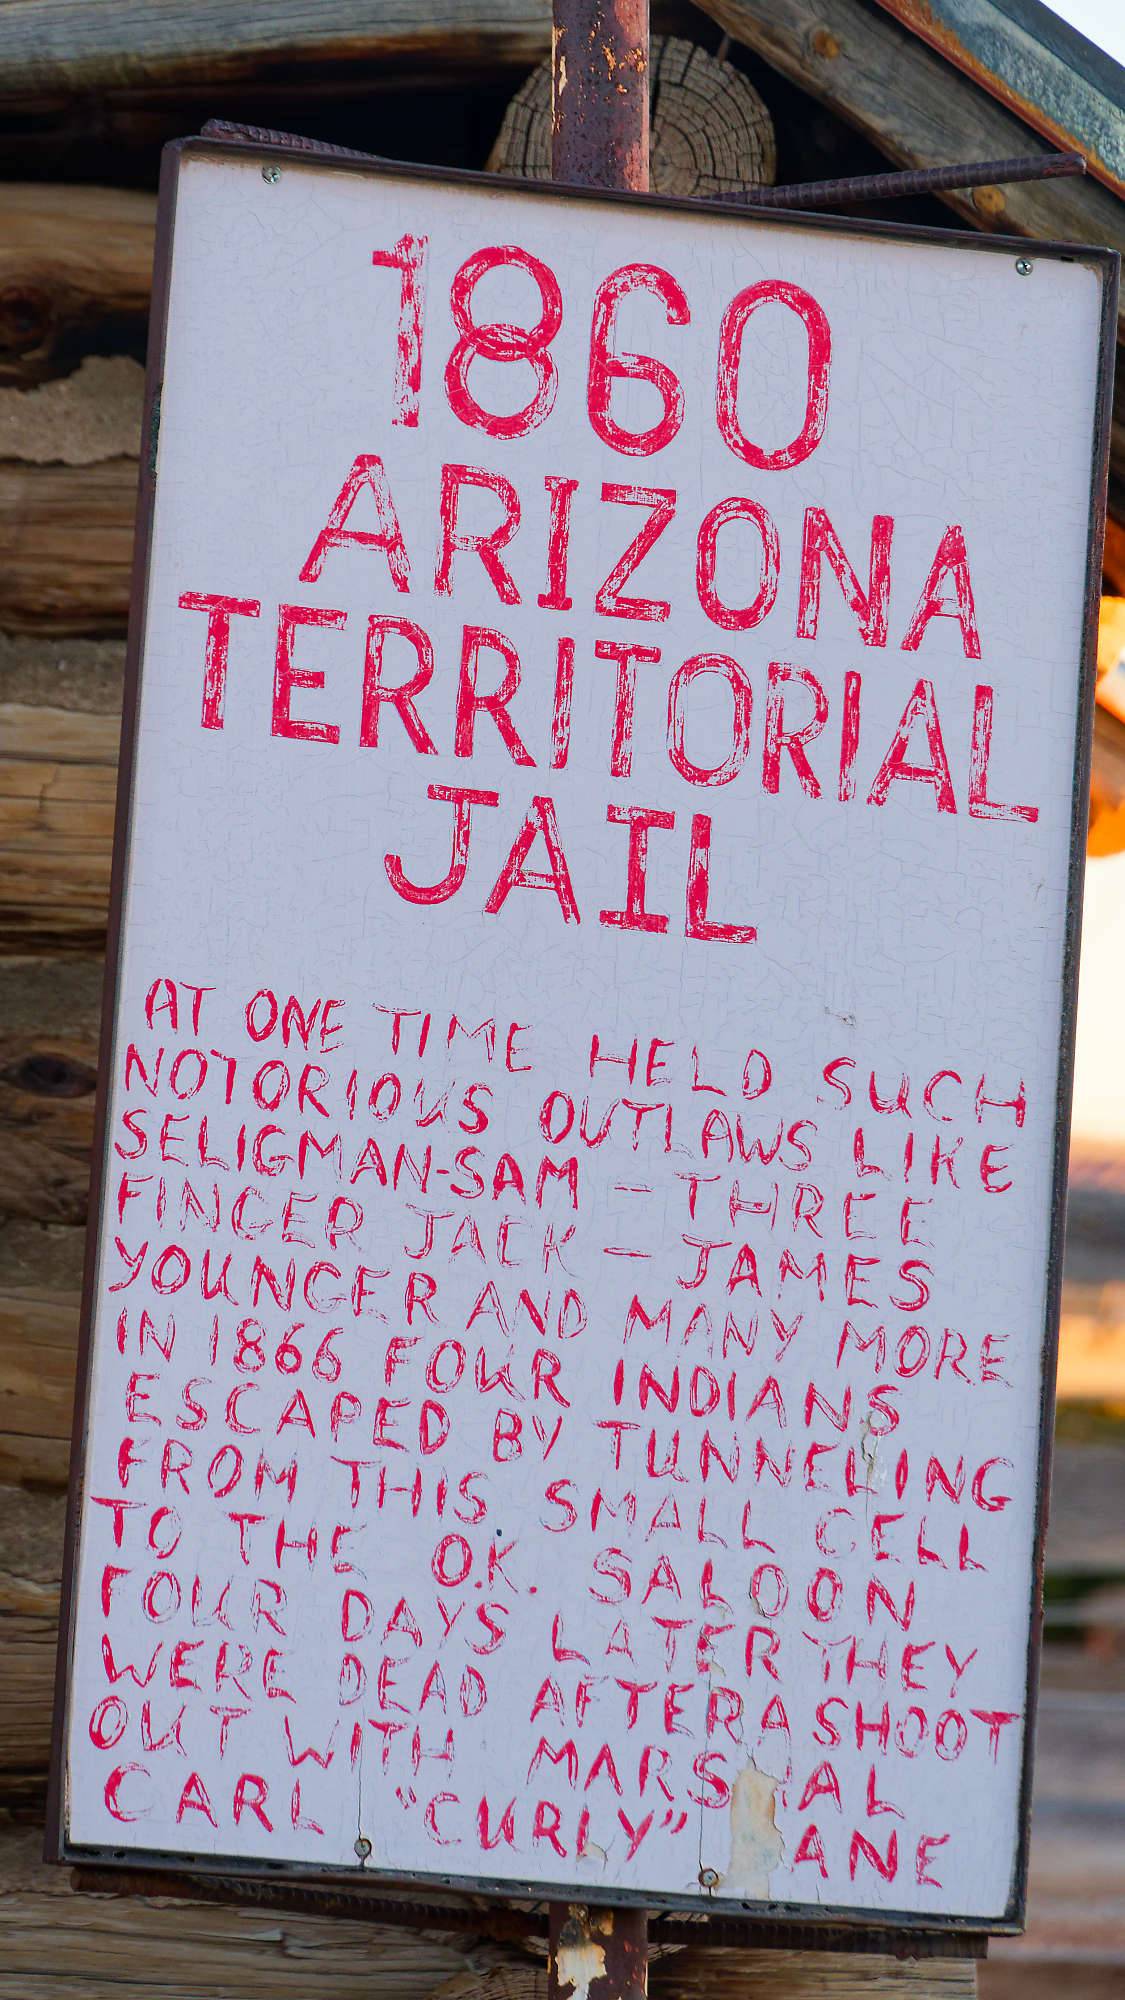 1860
ARIZONA
TERRITORIAL
JAIL
AT ONE TIME HELD SUCH
NOTORIOUS OUTLAWS LIKE
SELIGMAN-SAM – THREE
FINGER JACK – JAMES
YOUNGER AND MANY MORE
IN 1866 FOUR INDIANS
ESCAPED BY TUNNELING
FROM THIS SMALL CELL
TO THE O.K. SALOON
FOUR DAYS LATER THEY
WERE DEAD AFTER A SHOOT
OUT WITH
CARL "CURLY"